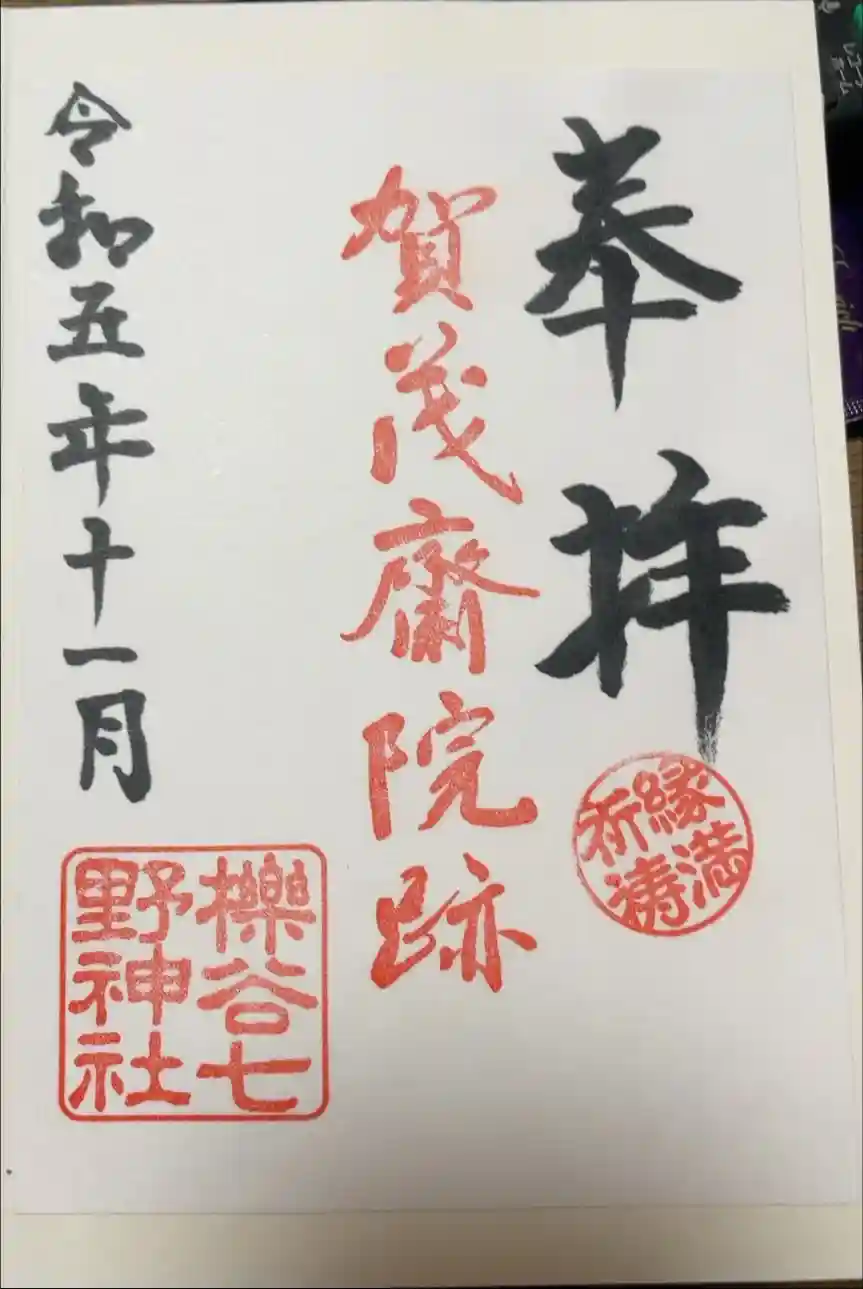 奉拝
縁満
祈祷
賀茂齋院跡
令和五年十一月
櫟谷七
野神社